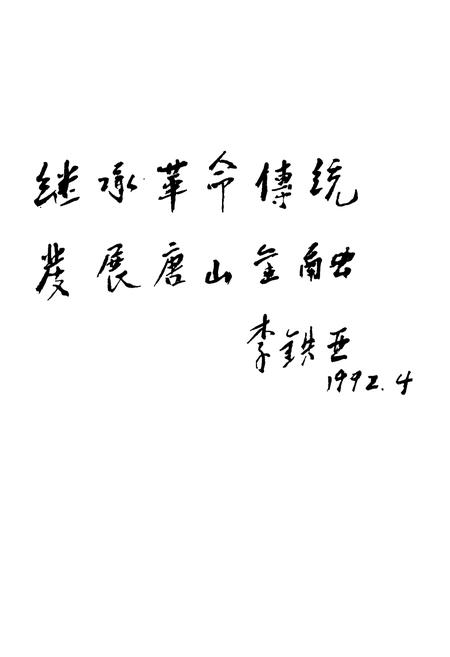 继承革命傳统
发展唐山金融
李铁亚
1992.4